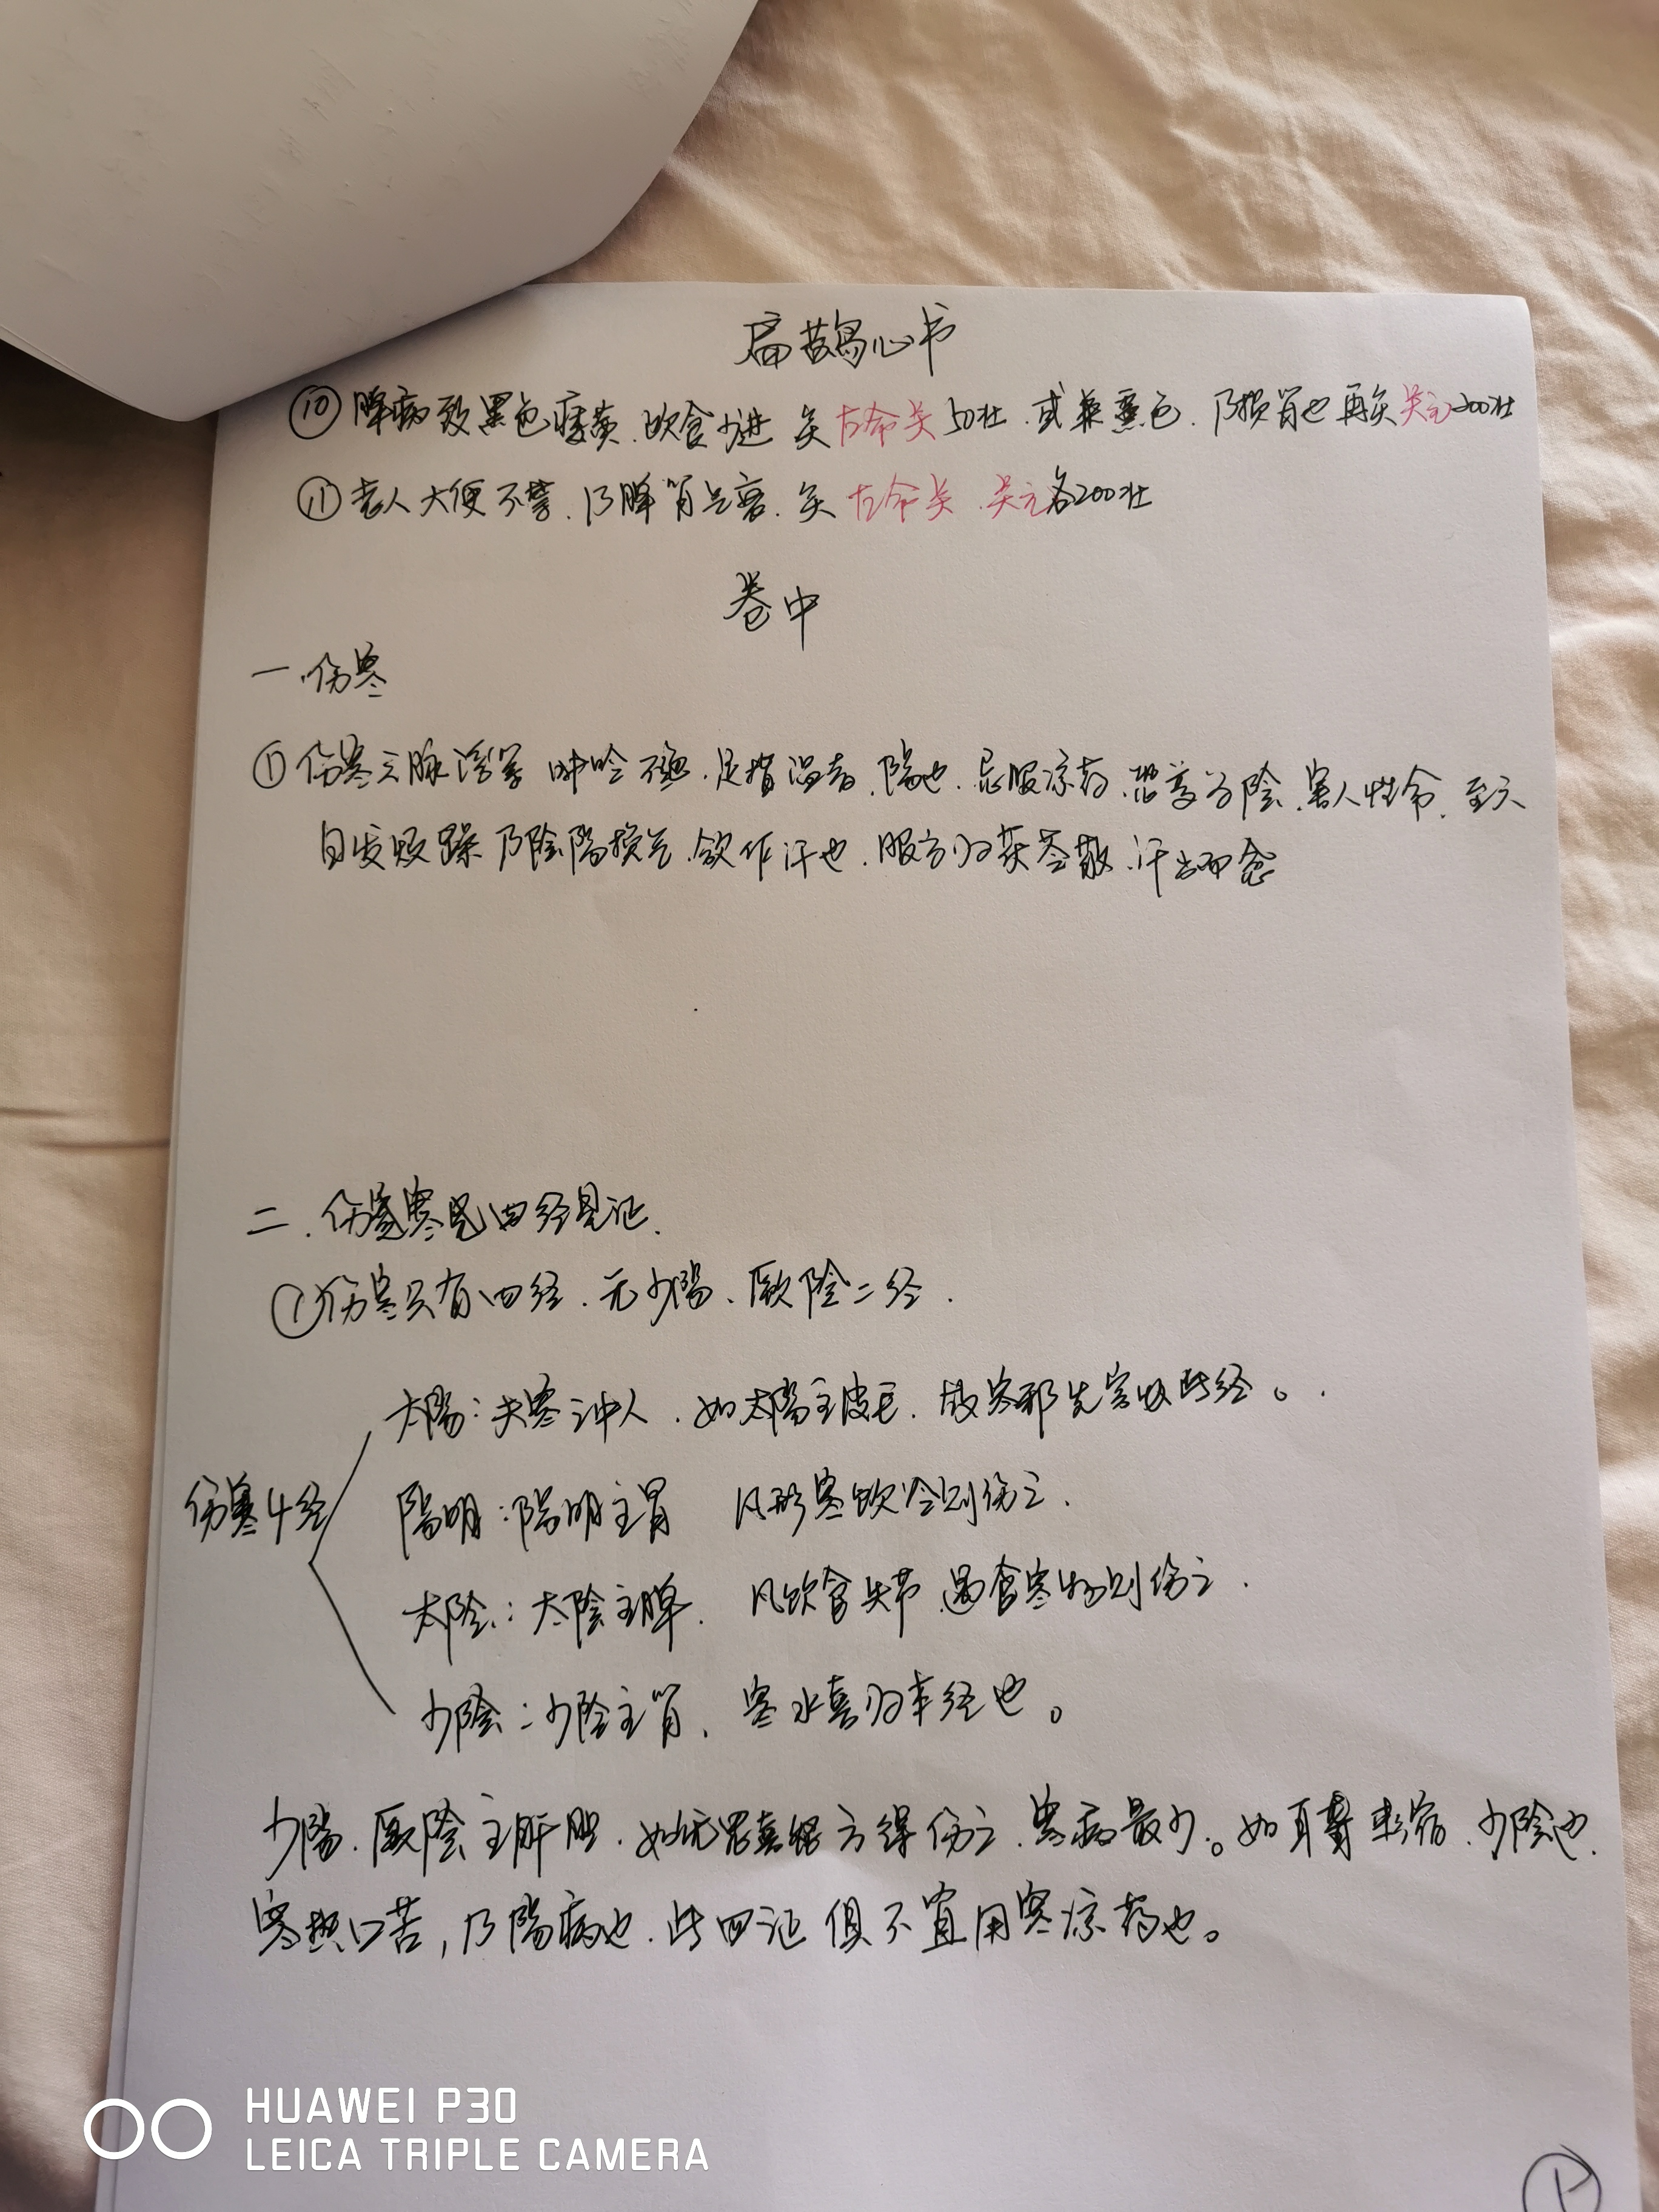 扁鹊心书
⑩脾病致黑色痿黄、饮食少进 灸左命关50壮.或兼黧色.乃损肾也 再灸关元200壮
⑪老人大便不禁.乃脾肾气衰.灸左命关.关元各200壮
卷中
一.伤寒
①伤寒六脉浮紧 呻吟不绝.足指温者,陽也.忌服凉药.恐变为陰.害人性命.至六
日发烦躁 乃陰陽换气.欲作汗也.服当归茯苓散.汗出而愈
二.伤寒四经见证.
①伤寒只有四经.无少陽、厥陰二经.
伤寒4经
太陽:夫寒之中人.如太陽主皮毛.故寒邪先客此经。.
陽明:陽明主胃 凡形寒饮冷则伤之.
太陰:太陰主脾. 凡饮食失节 过食寒物则伤之.
少陰:少陰主肾, 寒水喜归本经也。
少陽.厥陰主肝胆.如方得伤之.寒病最少。如耳聋囊缩.少陰也.
寒热口苦,乃陽病也.此四证俱不宜用寒凉药也。
HUAWEI P30
LEICA TRIPLE CAMERA